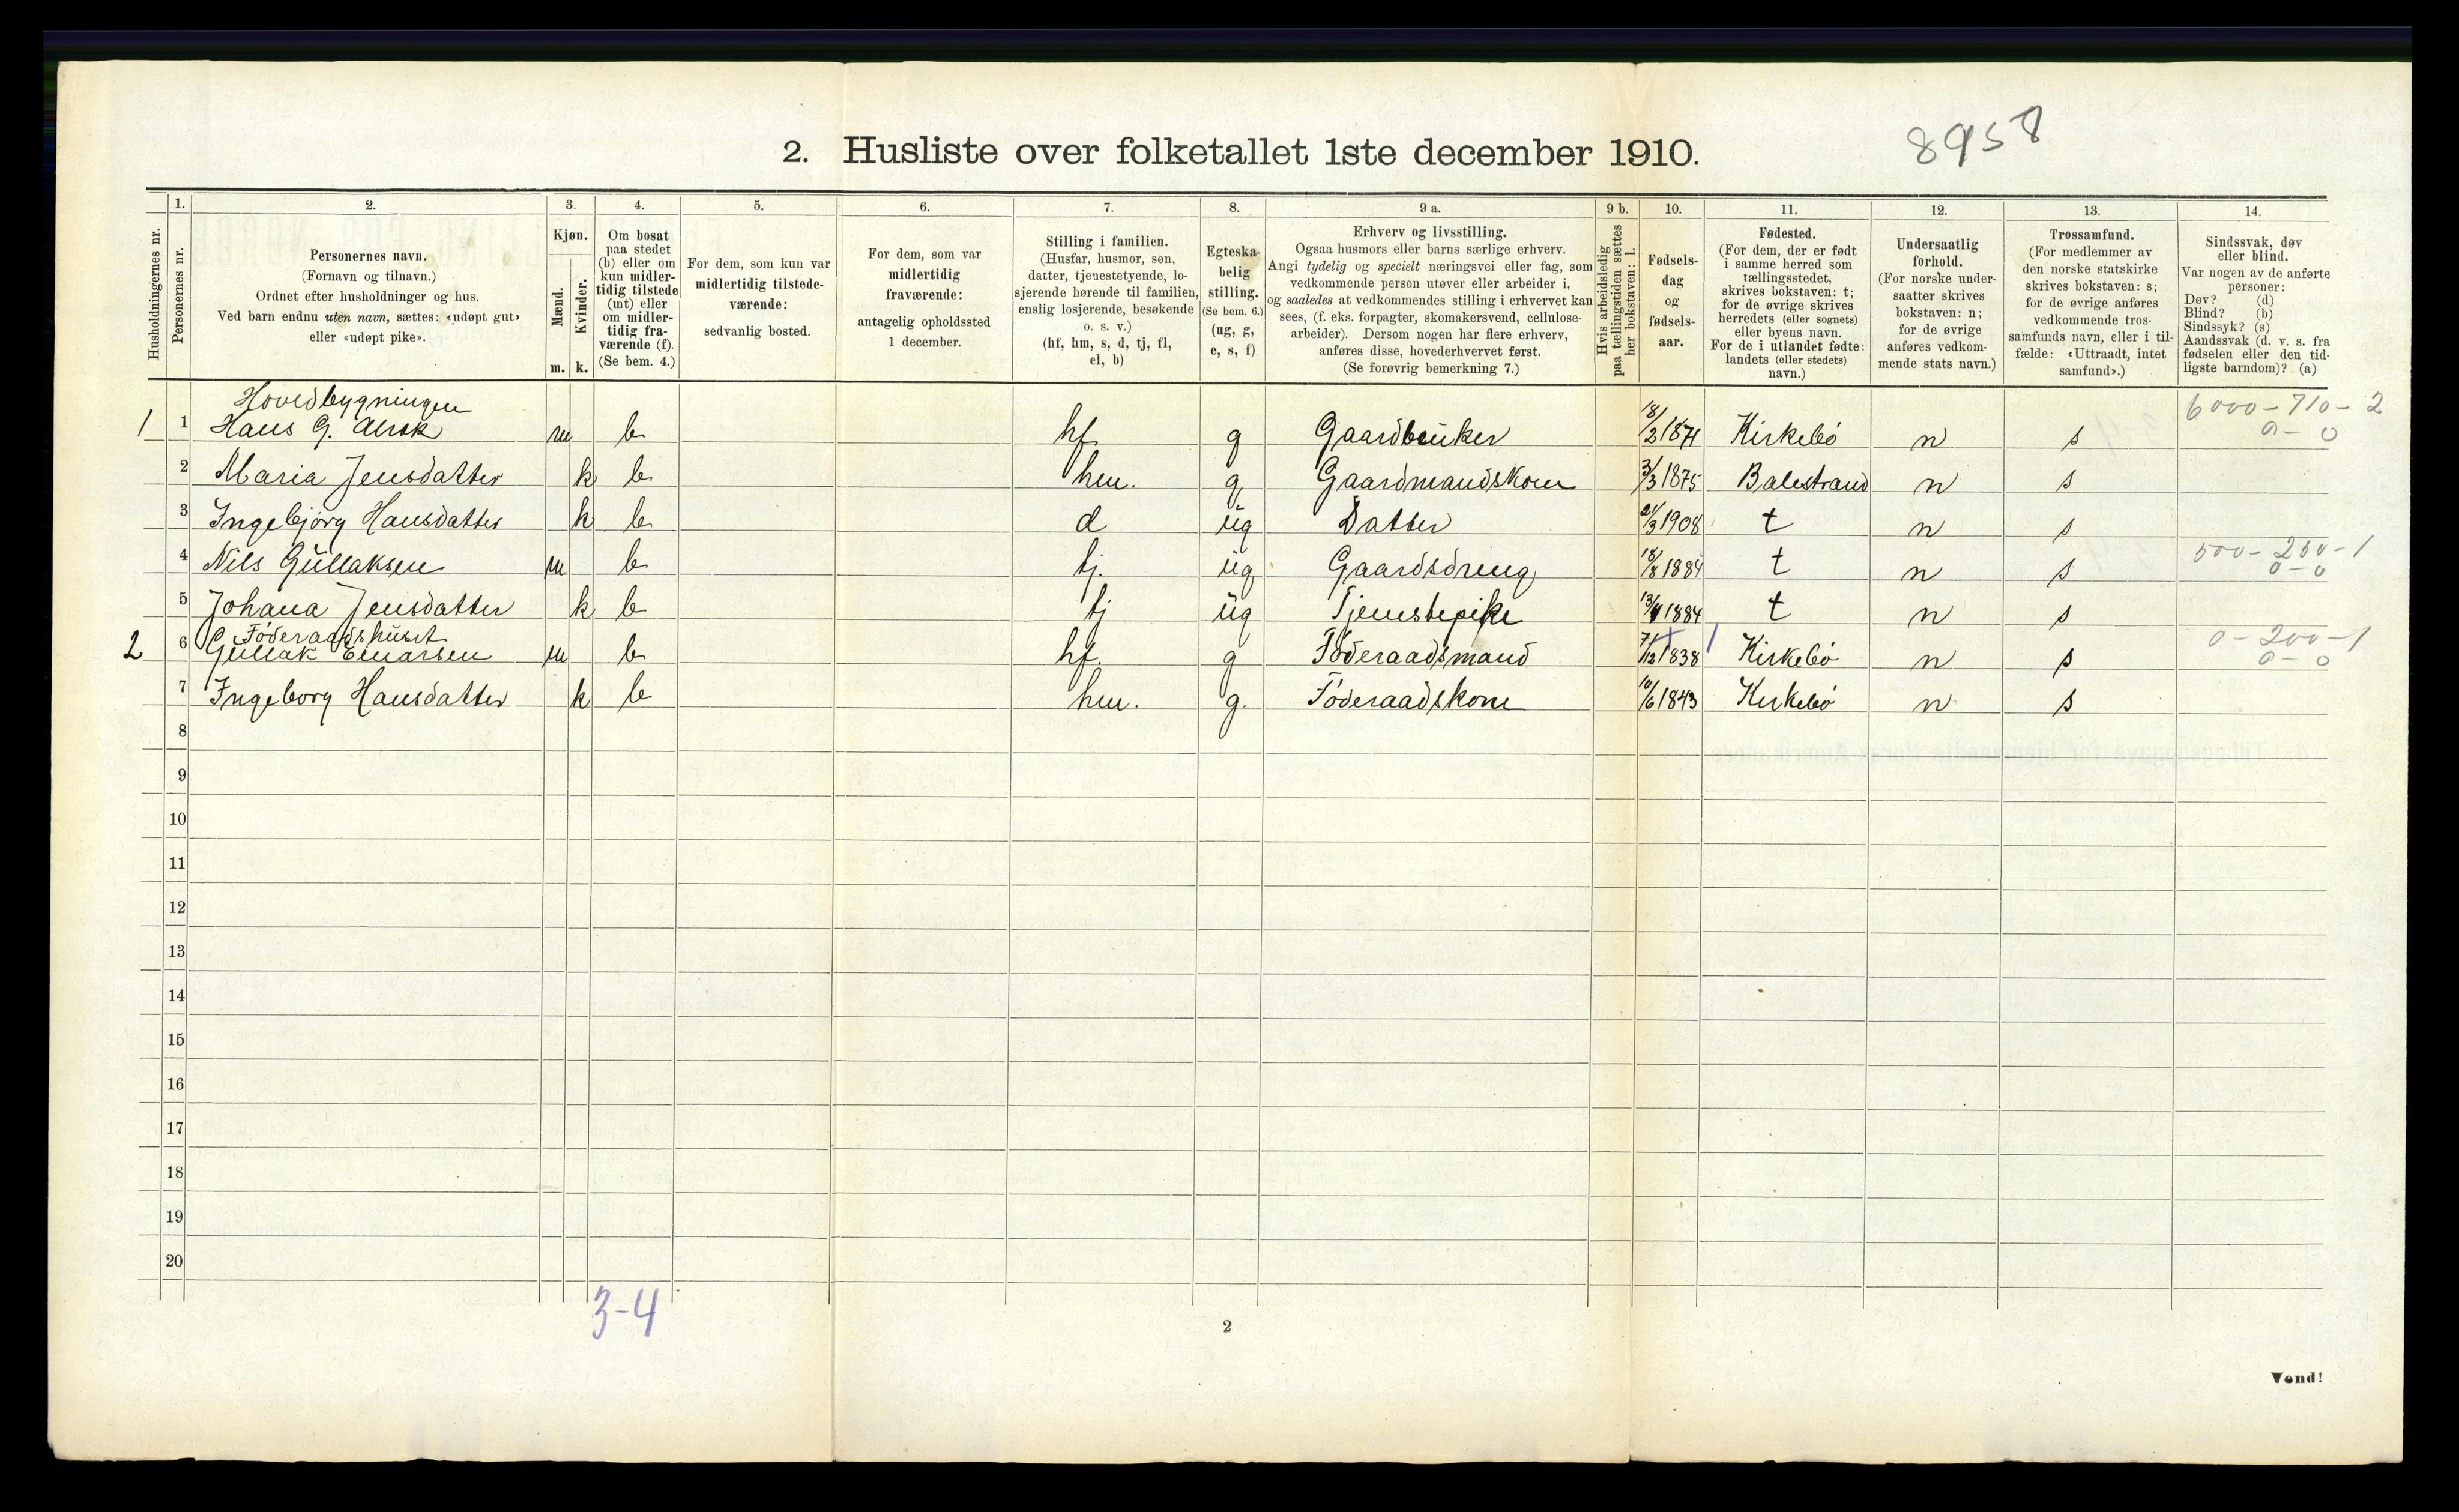 8958
2. Husliste over folketallet 1ste december 1910.
Husholdningernes nr.
1.
Personernes nr.
2.
Personernes navn.
(Fornavn og tilnavn.)
Ordnet efter husholdninger og hus.
Ved barn endnu uten navn, sættes: «udøpt gut»
eller «udøpt pike».
3.
Kjøn.
Mænd. Kvinder.
m. k.
4.
Om bosat
paa stedet
(b) eller om
kun midler-
tidig tilstede
(mt) eller
om midler-
tidig fra-
værende (f).
(Se bem. 4.)
5.
For dem, som kun var
midlertidig tilstede-
værende:
sedvanlig bosted.
6.
For dem, som var
midlertidig
fraværende:
antagelig opholdssted
1 december.
7.
Stilling i familien.
(Husfar, husmor, søn,
datter, tjenestetyende, lo-
sjerende hørende til familien,
enslig losjerende, besøkende
o. s. v.)
(hf, hm, s, d, tj, fl,
el, b)
8.
Egteska-
belig
stilling.
(Se bem. 6.)
(ug, g,
e, s, f)
9 a.
Erhverv og livsstilling.
Ogsaa husmors eller barns særlige erhverv.
Angi tydelig og specielt næringsvei eller fag, som
vedkommende person utøver eller arbeider i,
og saaledes at vedkommendes stilling i erhvervet kan
sees, (f. eks. forpagter, skomakersvend, cellulose-
arbeider). Dersom nogen har flere erhverv,
anføres disse, hovederhvervet først.
(Se forøvrig bemerkning 7.)
9 b.
Hvis arbeidsledig
paa tællingstiden sættes
her bokstaven: l.
10.
Fødsels-
dag
og
fødsels-
aar.
11.
Fødested.
(For dem, der er født
i samme herred som
tællingsstedet,
skrives bokstaven: t;
for de øvrige skrives
herredets (eller sognets)
eller byens navn.
For de i utlandet fødte:
landets (eller stedets)
navn.)
12.
Undersaatlig
forhold.
(For norske under-
saatter skrives
bokstaven: n;
for de øvrige
anføres vedkom-
mende stats navn.)
13.
Trossamfund.
(For medlemmer av
den norske statskirke
skrives bokstaven: s;
for de øvrige anføres
vedkommende tros-
samfunds navn, eller i til-
fælde: «Uttraadt, intet
samfund».)
14.
Sindssvak, døv
eller blind.
Var nogen av de anførte
personer:
Døv? (d)
Blind? (b)
Sindssyk? (s)
Aandssvak (d. v. s. fra
fødselen eller den tid-
ligste barndom)? (a)
Hovedbygningen 6000-710-2
1 1 Hans G. m b hf g Gaardbruker 18/2 1871 Kirkebö n s 0-0
2 Maria Jensdatter k b hm. g Gaardmandskone 3/3 1875 Balestrand n s
3 Ingebjörg Hansdatter k b d ug Datter 21/3 1908 t n s
4 Nils Gullaksen m b tj. ug Gaardsdreng 18/8 1884 t n s 500-250-1
0-0
5 Johana Jensdatter k b tj ug Tjenestepike 1884 t n s
Föderaadshuset
2 6 Gullak Einarsen m b hf. g Föderaadsmand 7/12 1838 Kirkebö n s 0-200-1
0-0
7 Ingeborg Hansdatter k b hm. g. Föderaadskone 10/6 1843 Kirkebö n s
8
9
10
11
12
13
14
15
16
17
18
19
20
3-4
2
Vend!